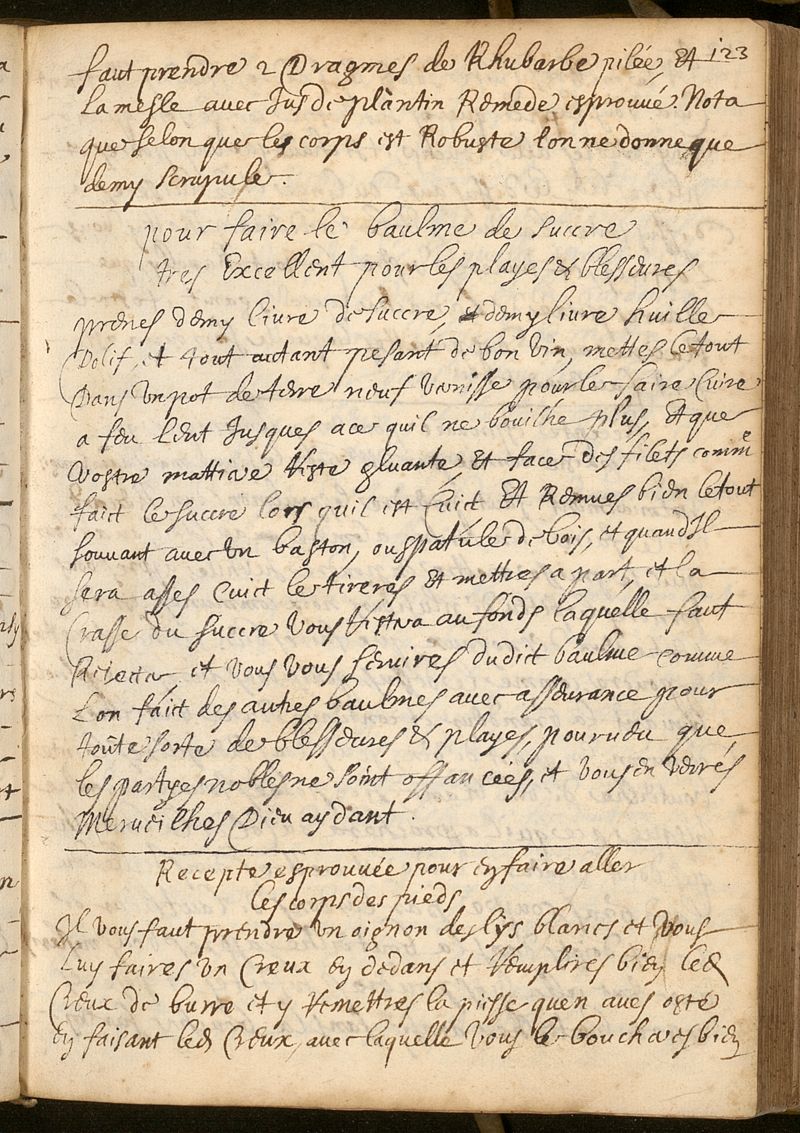 123
faut prendre 2 Dragmes de Rhubarbe pilée, Et
la mesle avec Jus de plantin Remede esprouvé. Nota
que selon que les corps est Robuste lon ne donne que
demy scrupule.
pour faire le baulme de succre
tres Excellent pour les playes & blesseures
prenes demy livre de succre, et demy livre huille
Dolif, et tout autant pesant de bon vin, mettes le tout
Dans Un pot de terre neuf vernisse pour le faire Cuire
a feu lent Jusques a ce quil ne bouilhe plus, Et que
Vostre mattiere Reste gluante, Et face des filets comme
faict le succre lors quil est Cuict Et Remues bien le tout
souvant avec Un baston, ou spatule de bois, et quand Il
sera asses Cuict le tireres Et mettres a part, et la
Crasse du succre Vous Restera au fonds laquelle faut
Rejecter, et vous vous servires dudict baulme comme
Lon faict des autres baulmes avec asseurance pour
toute sorte de blesseures & playes, pourveu que
les partyes nobles ne soint offancées, et vous en verrés
Merveilhes Dieu aydant.
Recepte esprouvée pour En faire aller
les corps des pieds
Il vous faut prendre Un oignon de lys blancs et Vous
Luy faires Un Creux En dedans et Remplires bien led
Creux de burre et y Remettres la piesse quen aves osté
En faisant led Creux, avec laquelle Vous le boucheres bien